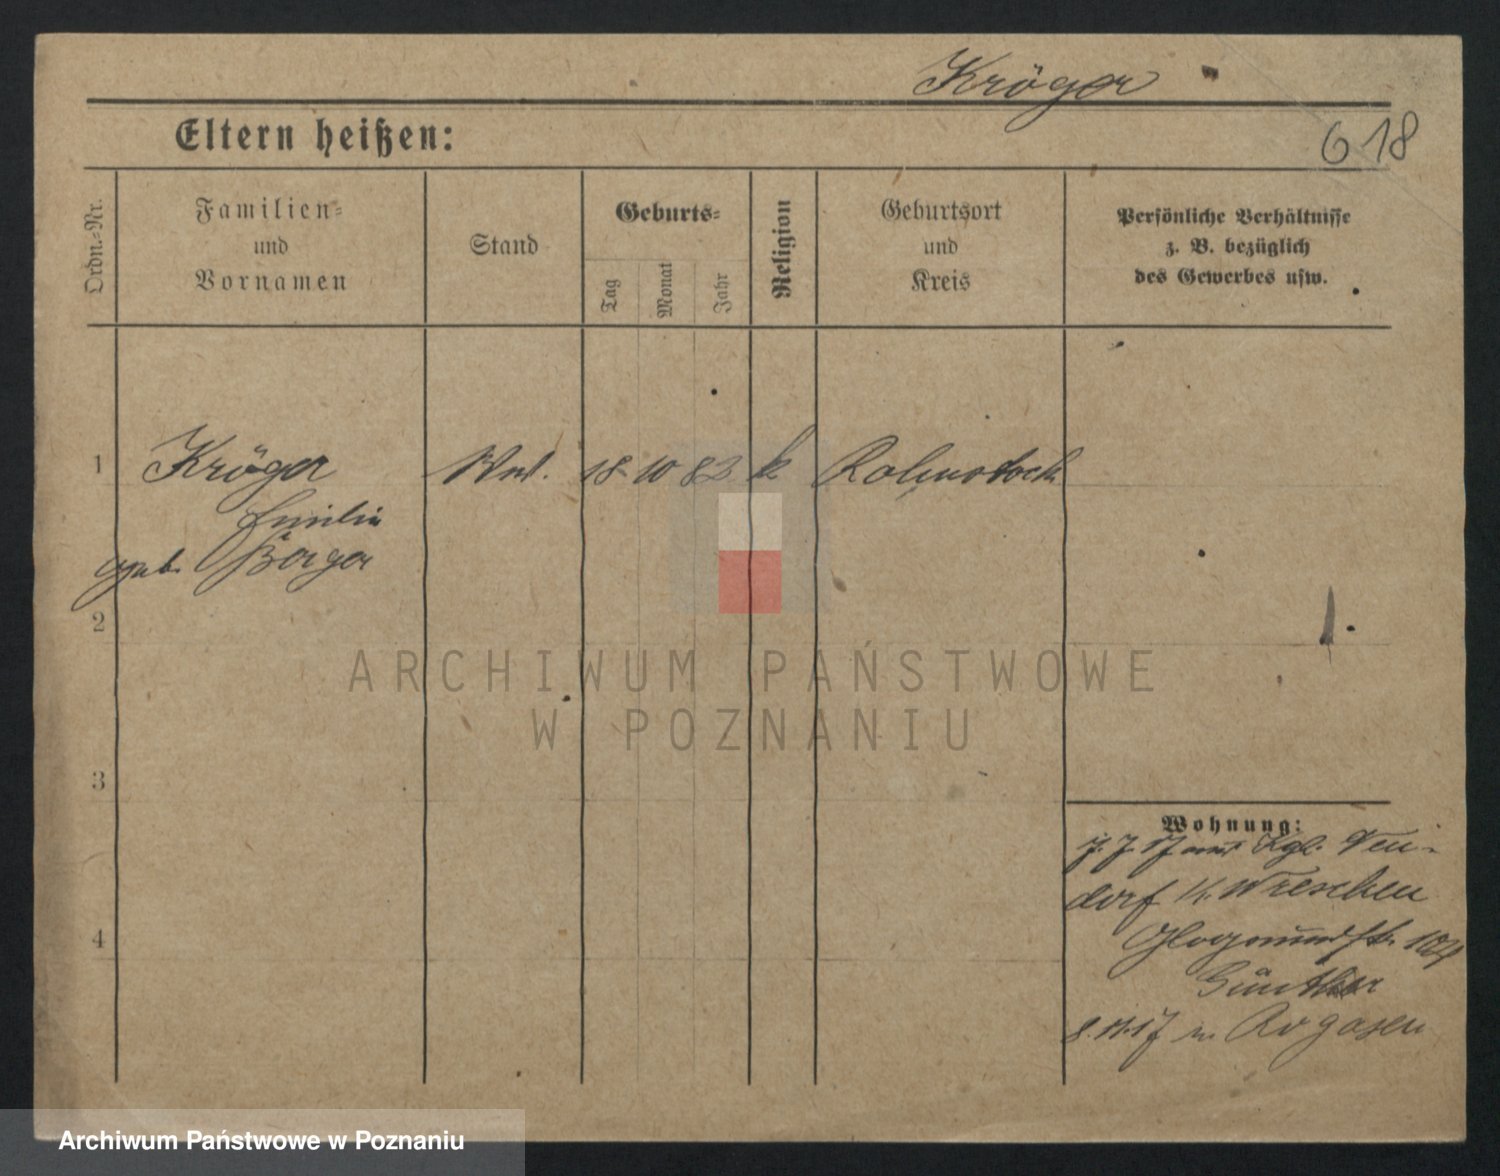 Kröger
Eltern heißen:
618
Ordn.-Nr.
Familien-
und
Vornamen
Stand
Geburts-
Tag
Monat
Jahr
Religion
Geburtsort
und
Kreis
Persönliche Verhältnisse
z. B. bezüglich
des Gewerbes usw.
1 Kröger Ww. 18 10 83 k
Emilie
geb. Berger
2
3
4
Wohnung:
7. 7. 17 aus Kgl. Neu-
dorf K. Wreschen
Glogauerstr. 104
Günther
8.11.17 n. Rogasen
ARCHIWUM PAŃSTWOWE
W POZNANIU
Archiwum Państwowe w Poznaniu